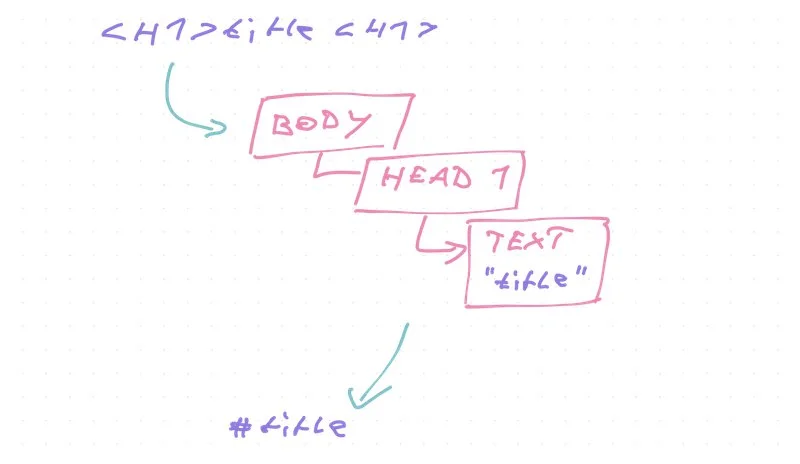 <H1>title <H1>
BODY
HEAD 1
TEXT
"title"
#title